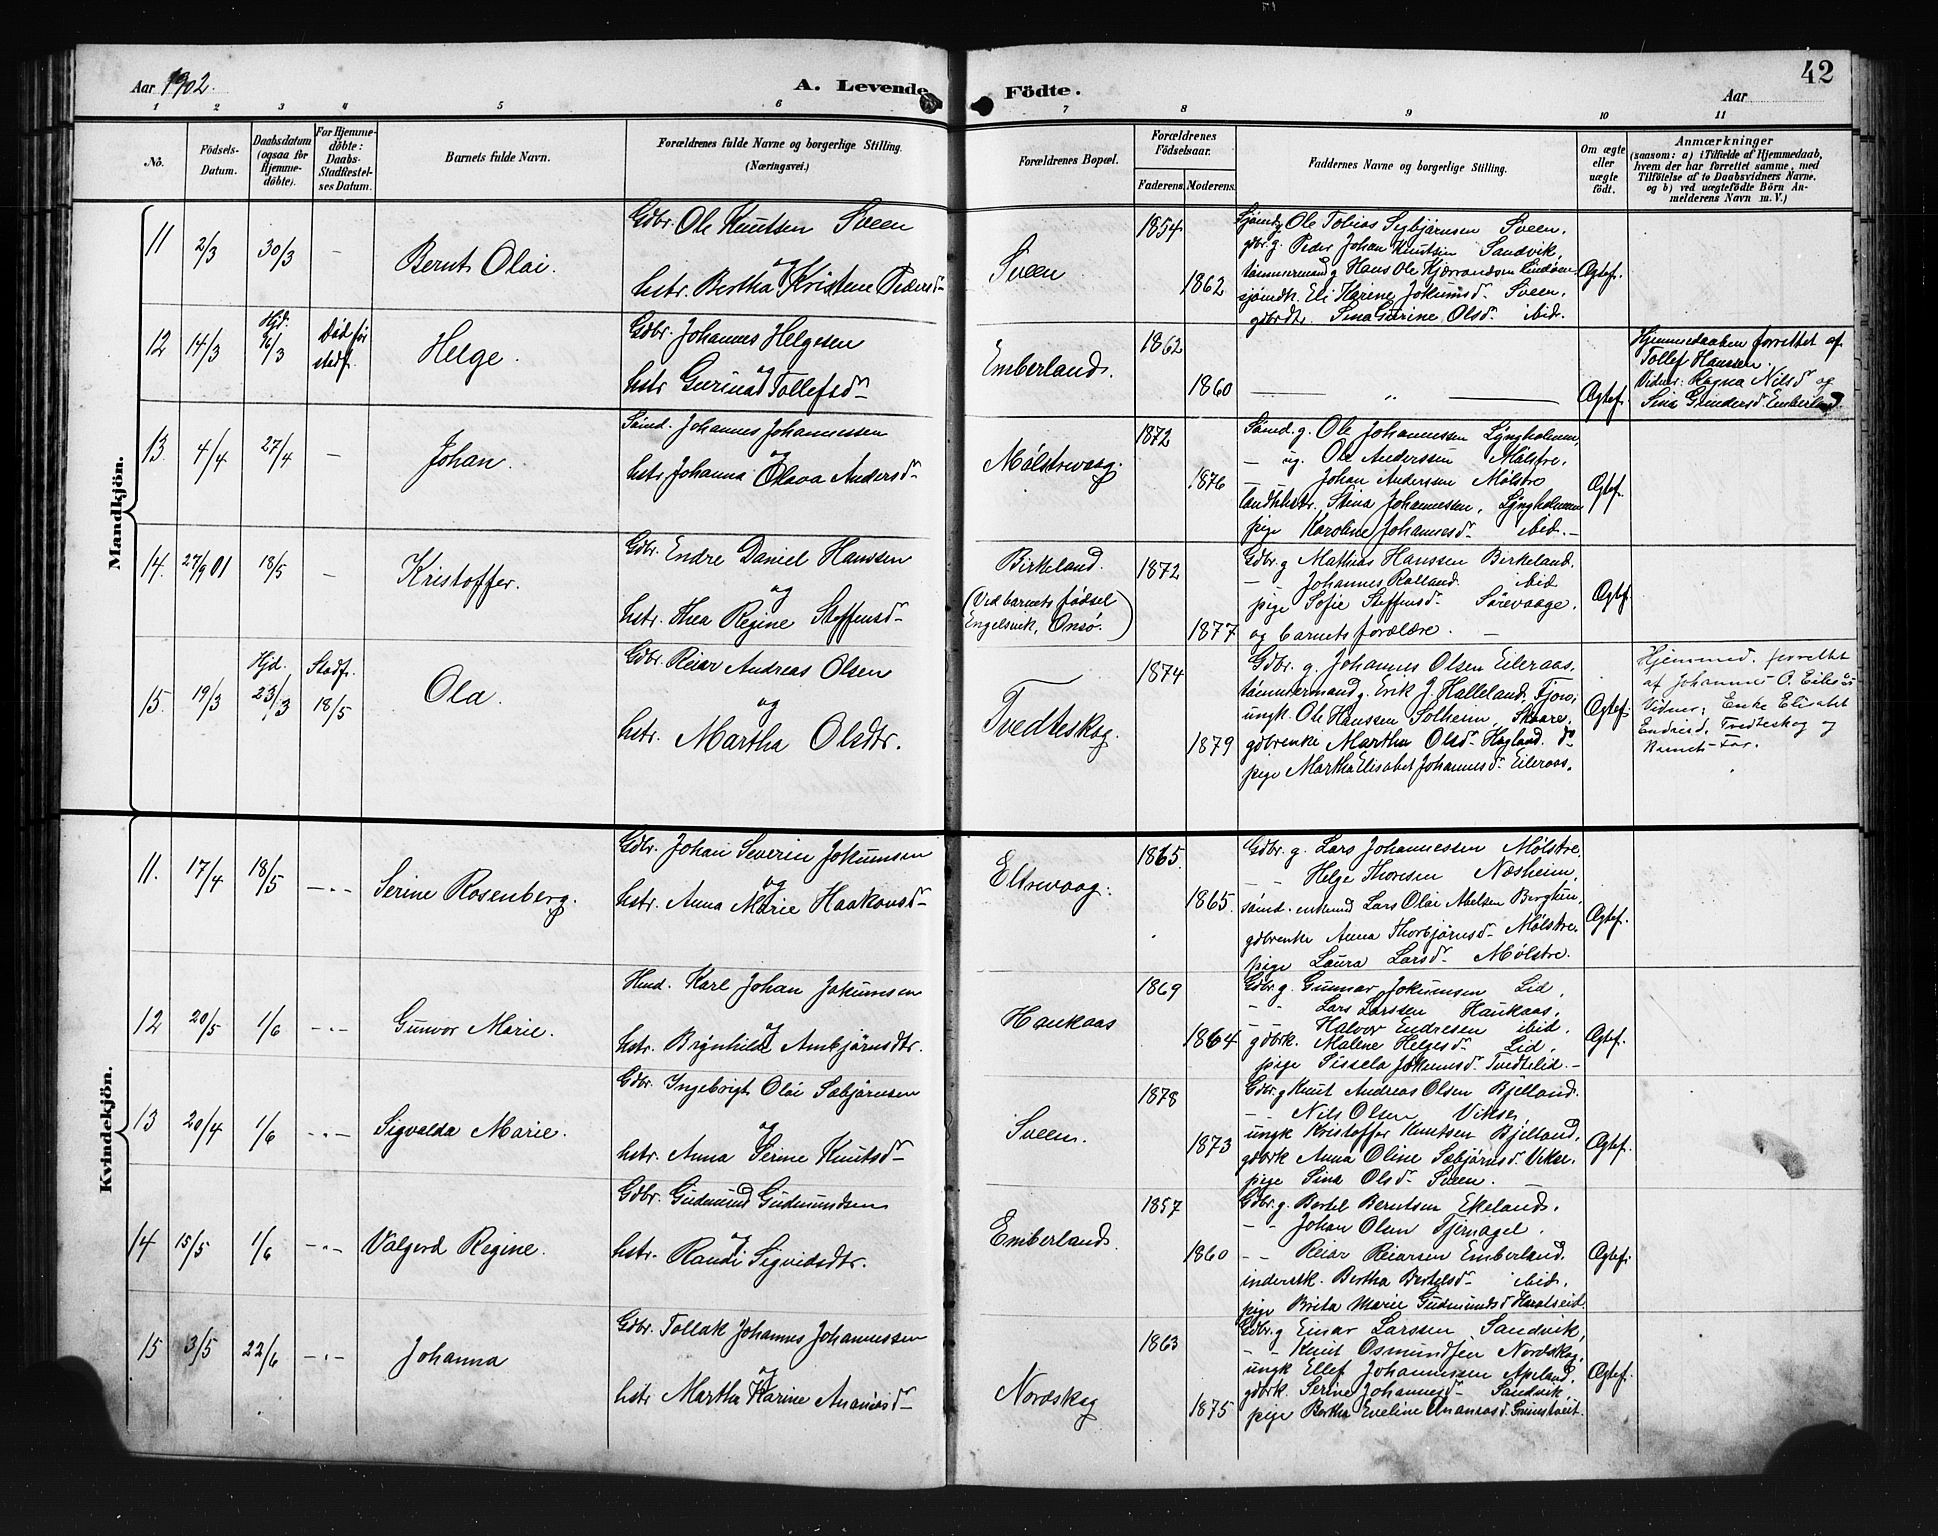 42
Aar 1902.
A. Levende Födte.
Aar
1 2 3 4 5 6 7 8 9 10 11
No.
Födsels-Datum.
Daabsdatum (ogsaa for Hjemme-döbte).
For Hjemme-döbte: Daabs-Stadfæstel-ses Datum.
Barnets fulde Navn.
Forældrenes fulde Navne og borgerlige Stilling.
(Næringsvei.)
Forældrenes Bopæl.
Forældrenes Födselsaar.
Faderens. Moderens.
Faddernes Navne og borgerlige Stilling.
Om ægte eller uægte födt.
Anmærkninger
(saasom: a) i Tilfælde af Hjemmedaab, hvem der har forrettet samme, med Tilföielse af to Daabsvidners Navne, og b) ved uægtefödte Börn An-melderens Navn m. V.)
Mandkjön.
11 2/3 30/3 - Bernt Olai.
Gdbr. Ole Knutsen Sveen
og
hstr. Bertha Kristene Pedersd-
Sveen 1854 1862
Ole Tobias Sigbjørnsen Sveen.
gbr. g. Peder Johan Knutsen Sandvik,
tømmermand g. Hans Ole
Eli Karine Jokumsd- Sveen.
gdbrdtr. Sina Gurine Olsd- ibid.
Ægtef.
12 14/3 Hjd. 16/3 Død før stadf. Helge.
Gdbr. Johannes Helgesen
og
hstr Gurina Tollefsd-
Emberland. 1862 1860
— " —
Ægtef.
Hjemmedaaben forrettet af
Tollef Hanssen.
Vidner: Ragna Nilsd og
Sina Emberland
13. 4/4 27/4 - Johan.
Sømd. Johannes Johannessen
og
hstr. Johanna Olava Andersd-
Mølstrevaag. 1872 1876
Sømd. g. Ole Johannessen Lyngholmen,
— ug. Ole Anderssen Mølstre.
— Johan Andersen Mølstre
Stina Johannessen, Lyngholmen
pige Karoline Johannesd- ibid.-
Ægtef.
14. 27/9 01 18/5 - Kristoffer.
Gdbr. Endre Daniel Hanssen
og
hstr. Thea Regine Steffensd-
Birkeland.
(Ved barnets fødsel
Engelsvik, Onsø.)
1872 1877
Gdbr. g Mathias Hanssen Birkeland.
- - Johannes Rolland. ibid
pige Sofie Steffensd- Sørevaage.
og barnets forældre. -
Ægtef.
15. 19/3 Hjd. 23/3 Stadf. 18/5 Ola.
Gdbr. Reiar Andreas Olsen
og
hstr. Martha Olsdtr.
Tvedteskog. 1874 1879
Gdbr. g. Johannes Olsen Eileraas,
tømmermand g. Erik J. Halleland, Fjon,
ungk. Ole Hanssen Solheim, Skaare.
gdbrenke Martha Olsd- Hagland. do
pige Martha Elisabet Johannesd- Eileraas.
Ægtef.
Hjemmed. forrettet
af Johannes O. Eileraas
Vidner: Enke Elisabet
Endresd, Tvedteskog og
Barnets Far.
Kvindekjön.
11. 17/4 18/5 -"- Serine Rosenberg.
Gdbr. Johan Severin Jokumsen
og
hstr. Anna Marie Haakonsd-
Eltrevaag. 1865. 1865.
Gdbr. g. Lars Johannessen Mølstre.
- - Helge Thoresen Næsheim,
sømd. enkemd Lars Olai Abelsen
gdbrenke Anna Thorbjørnsd- Mølstre.
pige Laura Larsd- Mølstre.
Ægtef.
12 20/5 1/6 -"- Gunvor Marie.
Karl Johan Jokumsen
og
hstr. Brynhilde Ambjørnsdtr.
Haukaas 1869 1864
Gdbr. g. Gunnar Jokumsen Lid,
- - Lars Larssen Haukaas,
- - Halvor Endresen ibid,
gdbrk. Malene Helgesd- Lid,
pige Sissela Jokumsd- Tvedtelid.-
Ægtef.
13 20/4 1/6 -"- Sigvalda Marie.
Gdbr. Ingebrigt Olai Sæbjørnsen
og
hstr. Anna Serine Knutsd-
Sveen. 1878 1873
Gdbr. g Knut Andreas Olsen Bjelland.
- - Nils Olsen Vikse,
ungk Kristoffer Knutsen Bjelland.
gdbrk Anna Oline Sæbjørnsd- Vikse.
pige Sina Olsd- Sveen.
Ægtef.
14 15/5 1/6 -"- Valgerd Regine.
Gdbr. Gudmund Gudmundsen
og
hstr. Randi Sigveidsdtr.
Emberland. 1857 1860
Gdbr. g. Bertel Berntsen Ekeland.
- - Johan Olsen Tjernagel.
- - Reiar Reiarsen Emberland.
inderstk. Bertha Bertelsd- ibid.
pige Brita Marie Gudmundsd Haraldseid.
Ægtef.
15 3/5 22/6 -"- Johanna
Gdbr. Tollak Johannes Johannessen
og
hstr Martha Karine Ananiasd-
Nordskog 1863 1875
Gdbr. g Einar Larssen Sandvik,
- - Knut Osmundsen Nordskog,
ungk Ellef Johannessen Apeland,
gdbrk. Serine Johannesd- Sandvik,
pige Bertha Eveline Ananiasd.
Ægtef.